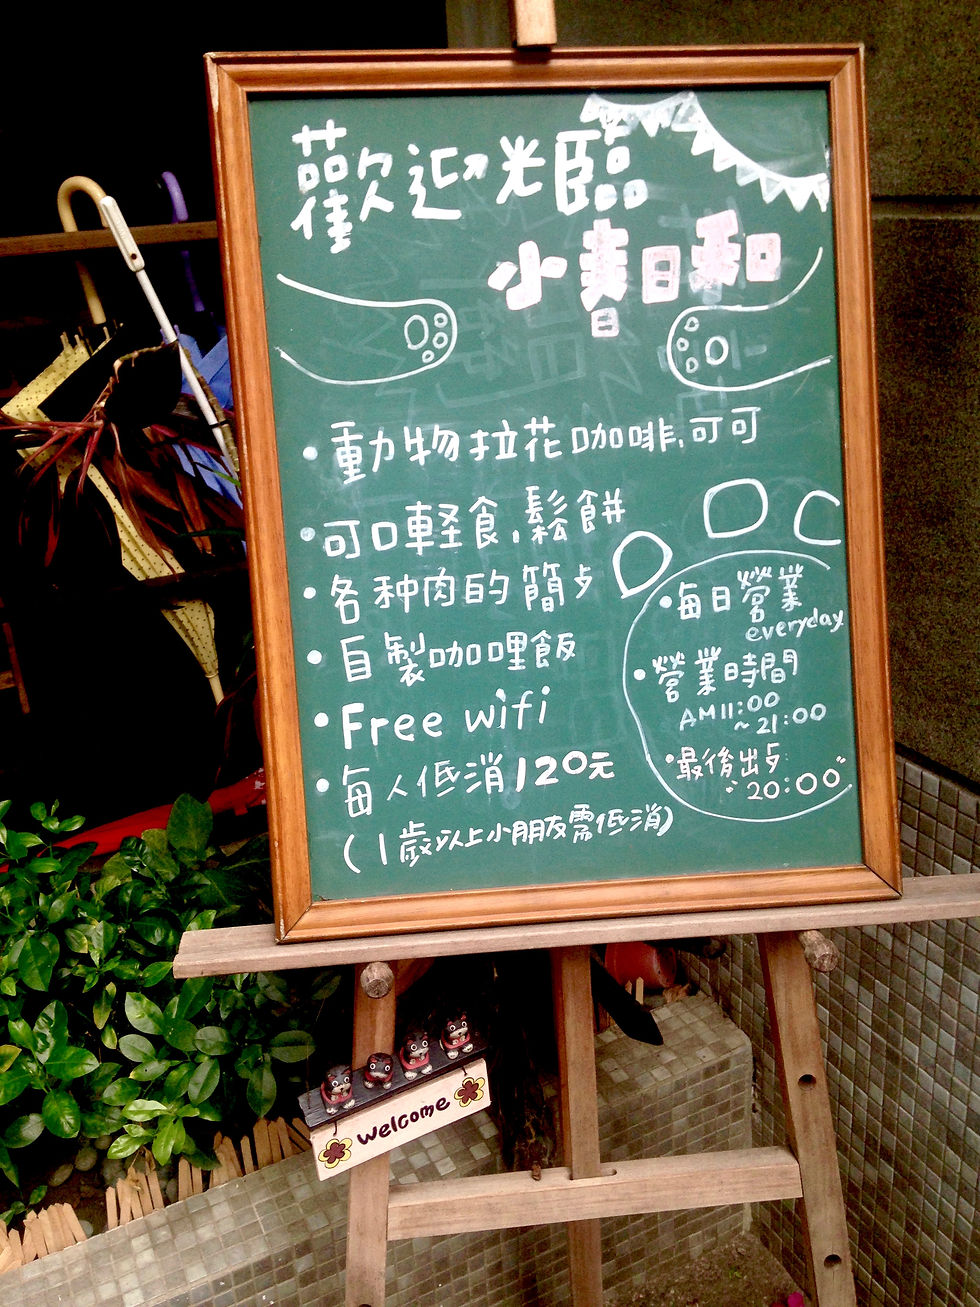 歡迎光臨
小春日和
・動物拉花咖啡,可可
・可口輕食,鬆餅
・各种肉的簡歺
・自製咖哩飯
・Free wifi
・每人低消120元
(1歲以上小朋友需低消)
・每日營業
everyday
・營業時間
AM11:00
~21:00
・最後出歺
"20:00"
welcome